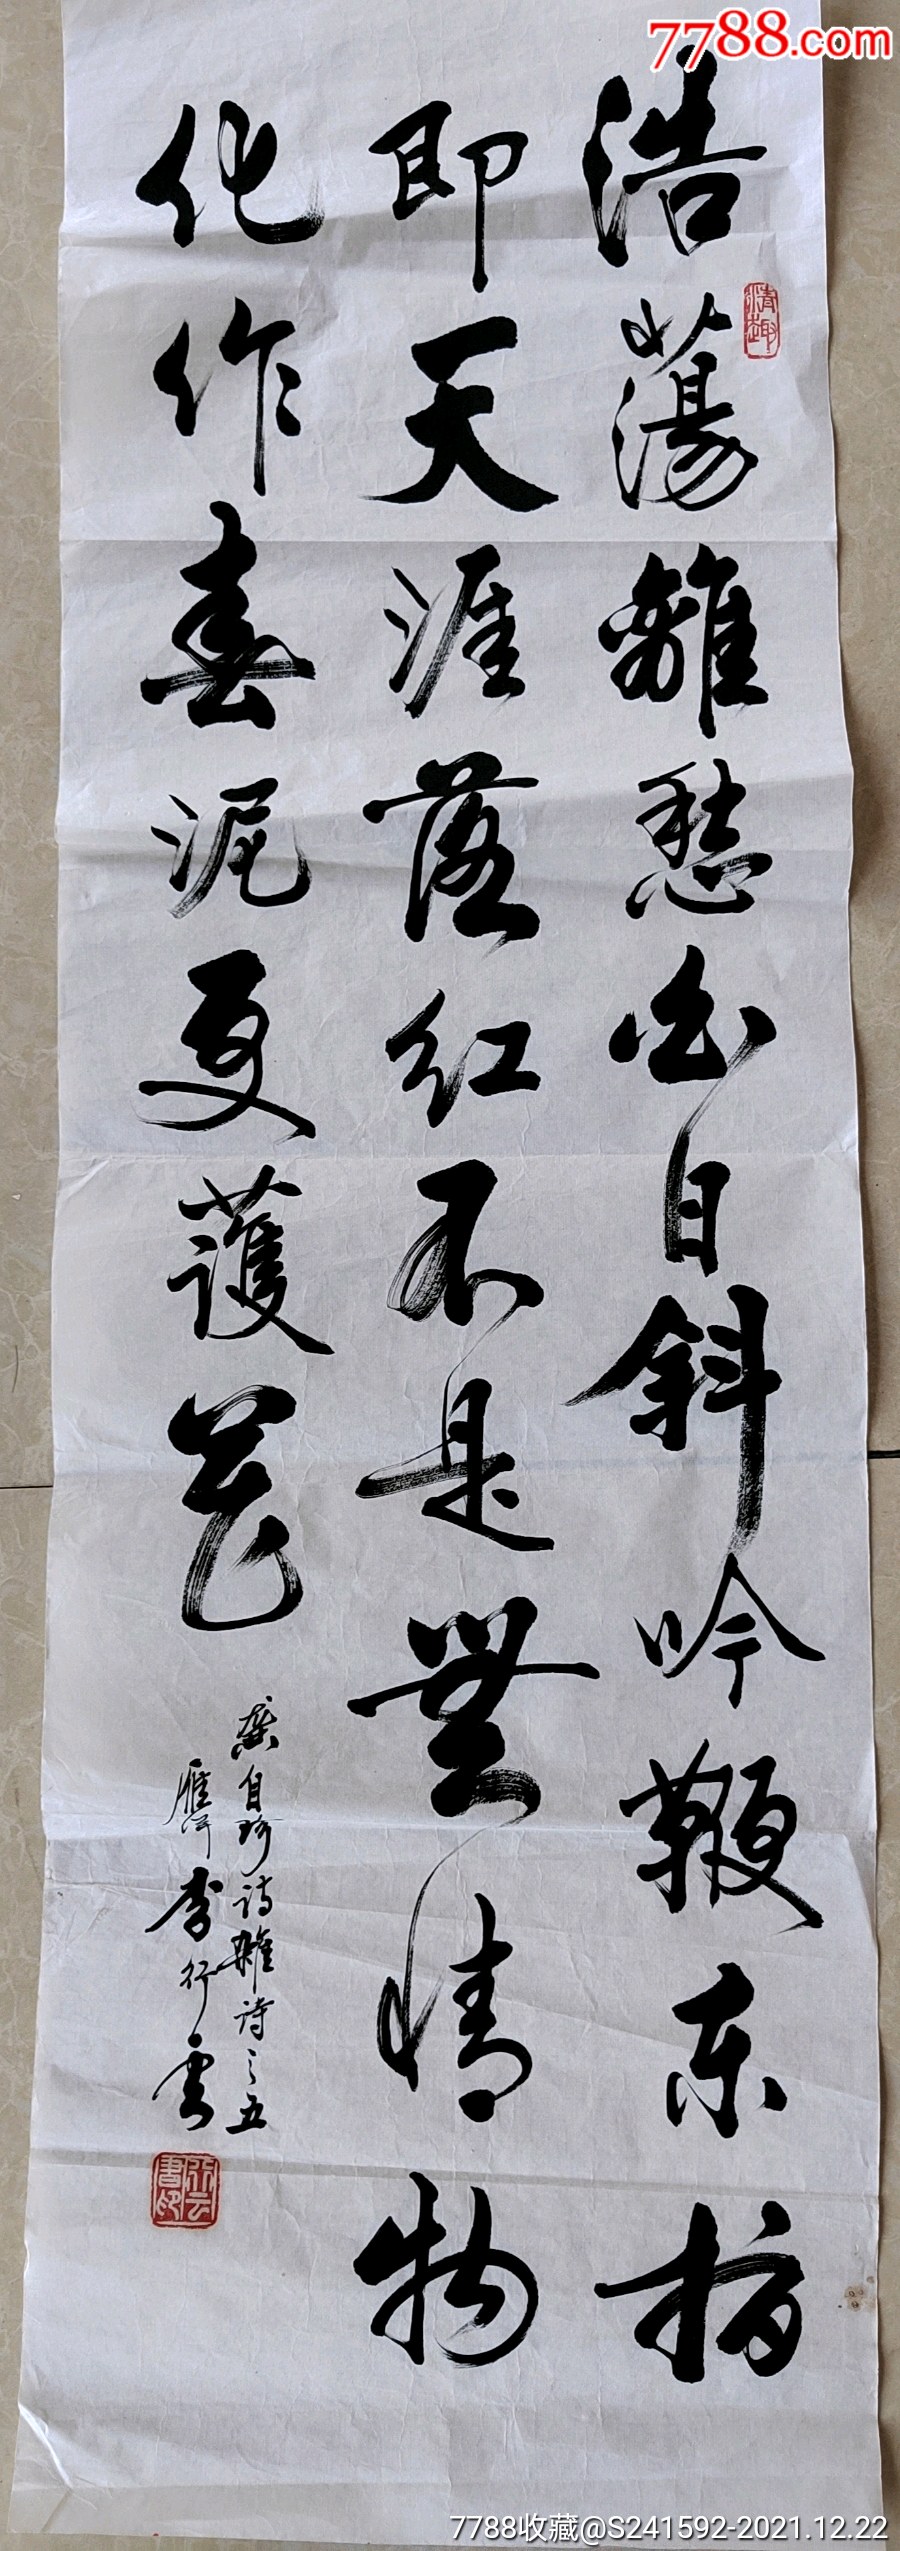 7788.com
浩蕩離愁白日斜吟鞭东指
情趣
即天涯落红不是無情物
化作春泥更護花
龚自珍诗雜诗之五
雁门李行雲
行云書印
7788收藏@S241592-2021.12.22